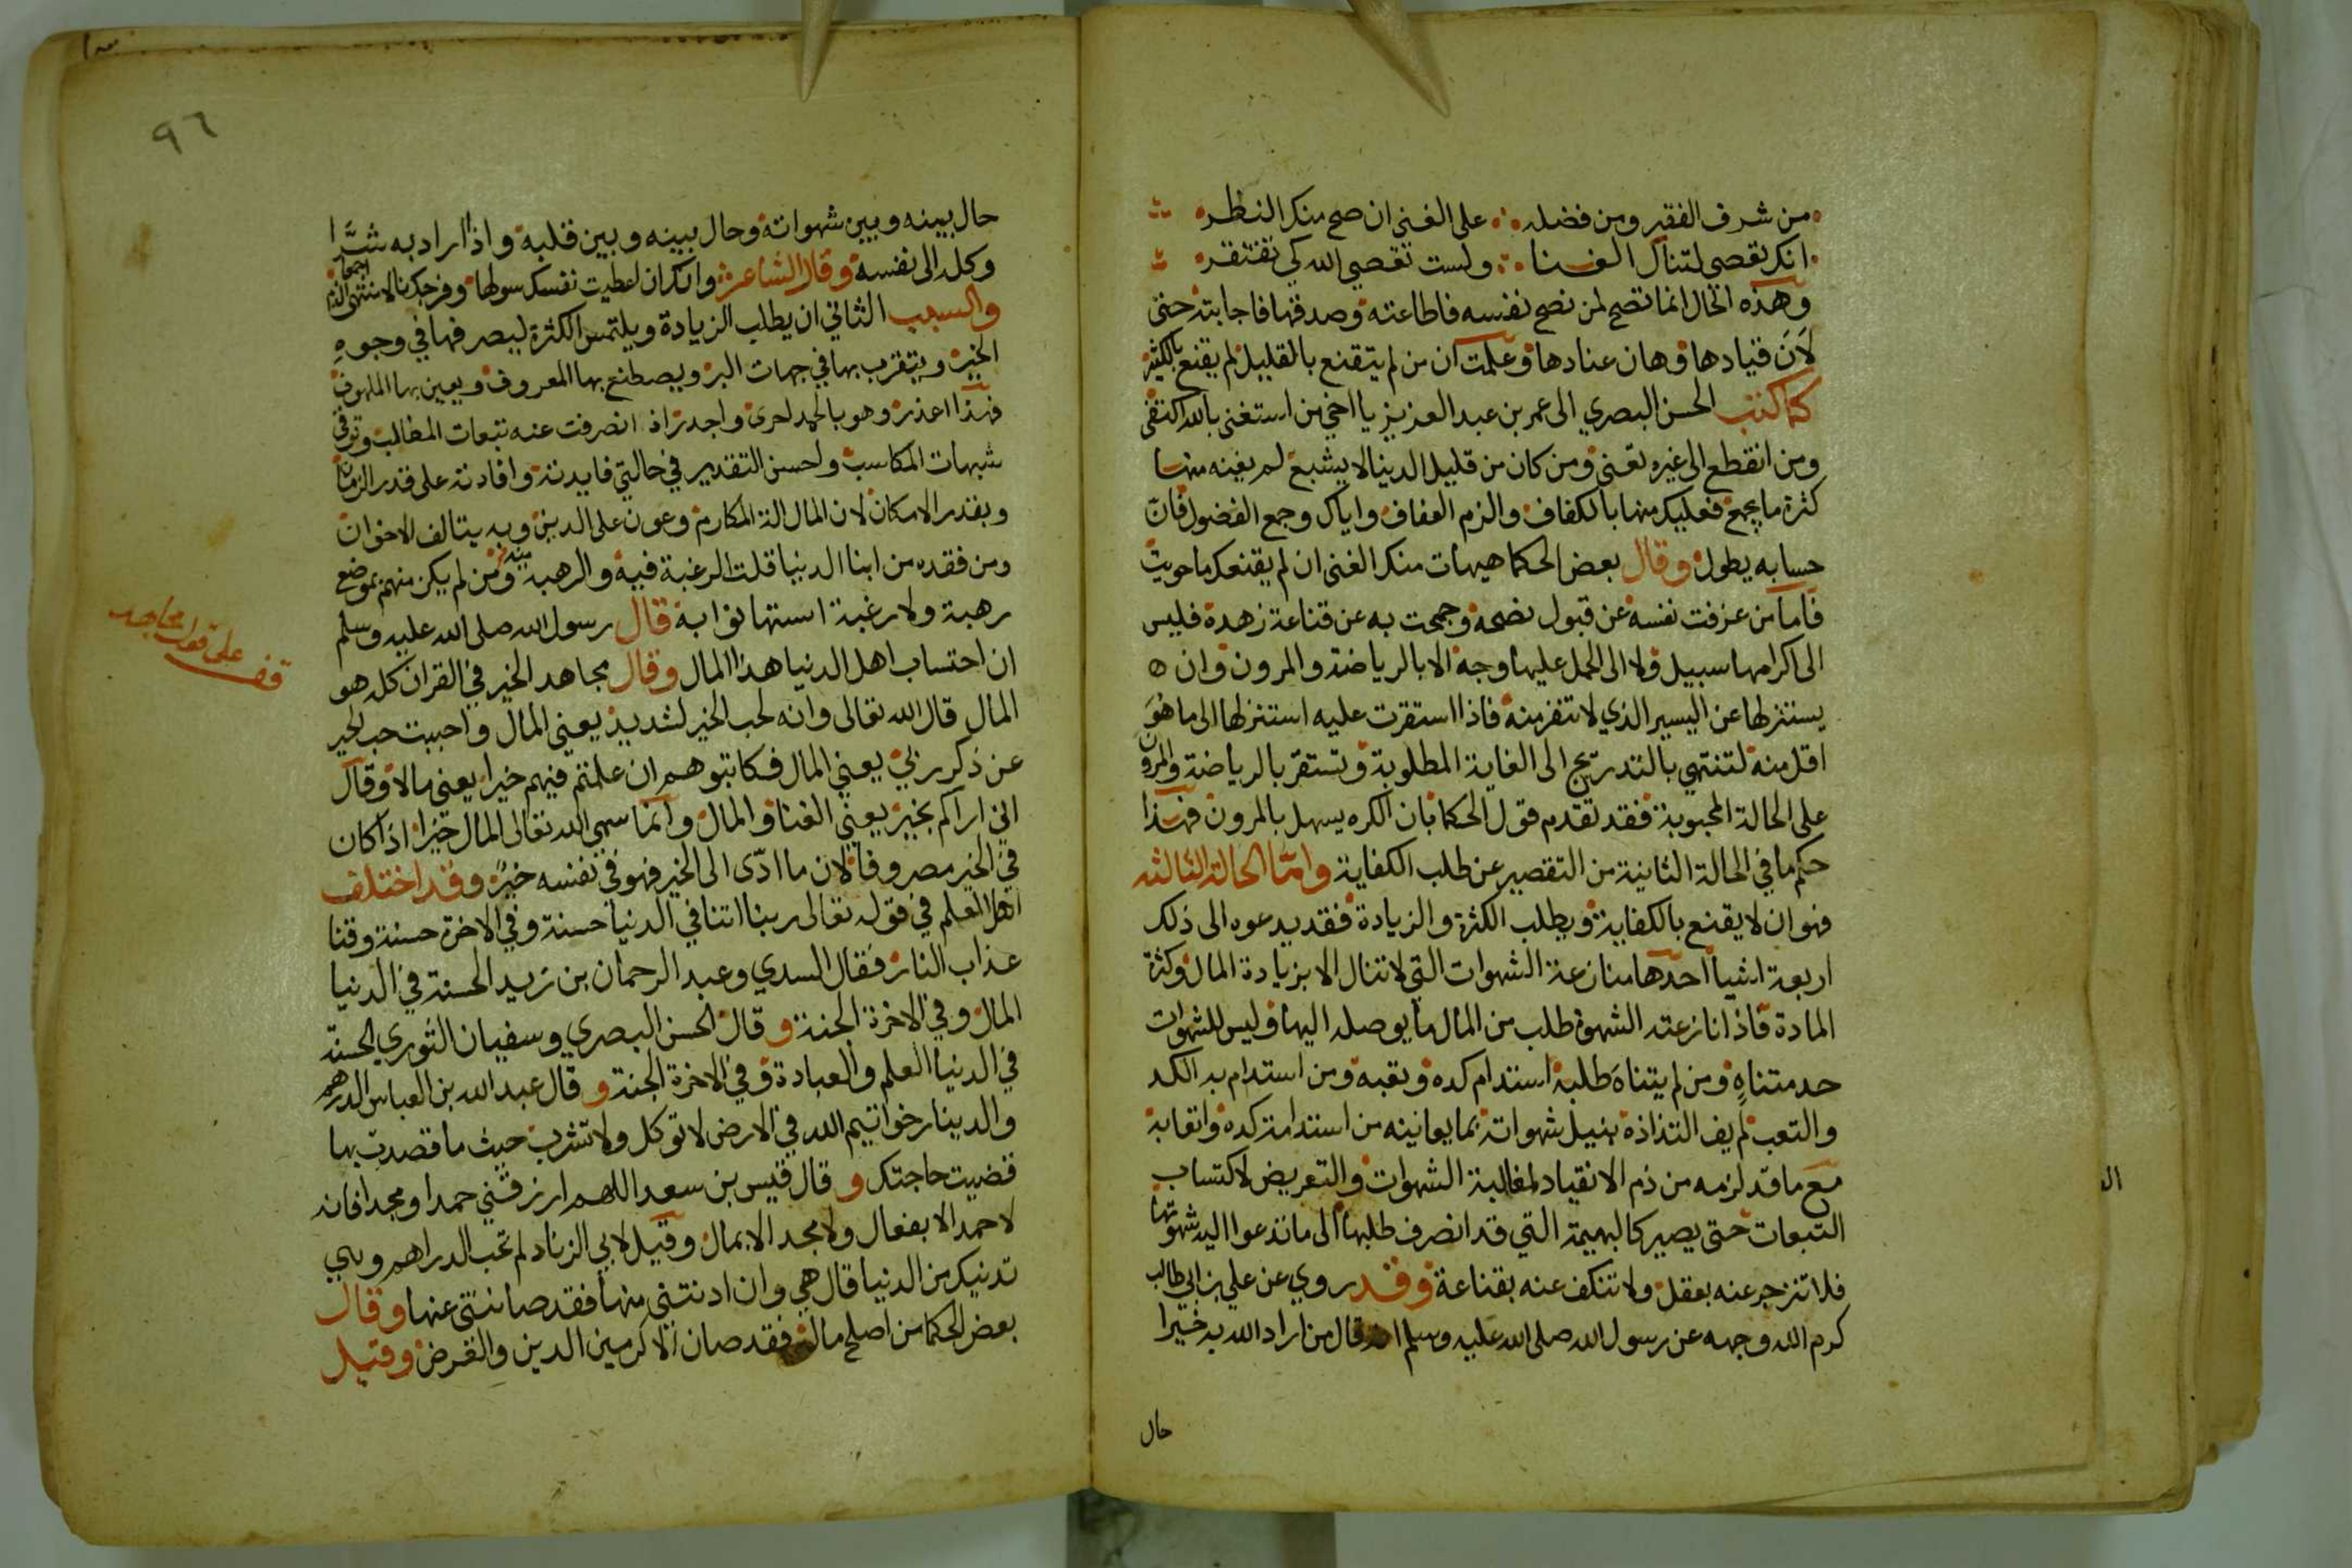 من شرف الفقر ومن فضله على الغنى ان صح منك النظر
انك تعصى لتنال الغنا ولست تعصي الله كي تفتقر
وهذه الحال انما تصح لمن نصح نفسه فاطاعته وصدقها فاجابته حتى
لان قيادها وهان عنادها وعلمت ان من لم يتقنع بالقليل لم يقنع بالكثير
كما كتب الحسن البصري الى عمر بن عبد العزيز يا اخي من استغنى بالله اكتفى
ومن انقطع الى غيره تعنى ومن كان من قليل الدنيا لا يشبع لم يغنه منها
كثرة ما يجمع فعليك منها بالكفاف والزم العفاف واياك وجمع الفضول فان
حسابه يطول وقال بعض الحكما هيهات منك الغنى ان لم يقنعك ما حويت
فاما من عزفت نفسه عن قبول نصحه وجمحت به عن قناعة زهده فليس
الى اكرامها سبيل ولا الى الحمل عليها وجه الا بالرياضة والمرون وان ه
يستنزلها عن اليسير الذي لا تنفر منه فاذا استقرت عليه استنزلها الى ما هو
اقل منه لتنتهي بالتدريج الى الغاية المطلوبة وتستقر بالرياضة والمرون
على الحالة المحبوبة فقد تقدم قول الحكما بان الكره يسهل بالمرون فهذا
حكم ما في الحالة الثانية من التقصير عن طلب الكفاية واما الحالة الثالثه
فهو ان لا يقنع بالكفاية ويطلب الكثرة والزيادة فقد يدعوه الى ذلك
اربعة اشيا احدها منازعة الشهوات التي لا تنال الا بزيادة المال وكثرة
المادة فاذا نازعته الشهوة طلب من المال ما يوصله اليها وليس للشهوات
حد متناه ومن لم يتناه طلبه استدام كده وتعبه ومن استدام به الكد
والتعب لم يف التذاذه بنيل شهواته بما يعانيه من استدامة كده واتعابه
مع ما قد لزمه من ذم الانقياد لمغالبة الشهوات والتعريض لاكتساب
التبعات حتى يصير كالبهيمة التي قد انصرف طلبها الى ما تدعوا اليه شهوتها
فلا تنزجر عنه بعقل ولا تنكف عنه بقناعة وقد روي عن علي بن ابي طالب
كرم الله وجهه عن رسول الله صلى الله عليه وسلم انه قال من اراد الله به خيرا
حال
٩٦
حال بينه وبين شهواته وحال بينه وبين قلبه واذا اراد به شرا
وكله الى نفسه وقال الشاعر وانك ان اعطيت نفسك سولها وفرجك نالا منتهى الذم اجمعا
والسبب الثاني ان يطلب الزيادة ويلتمس الكثرة ليصرفها في وجوه
الخير ويتقرب بها في جهات البر ويصطنع بها المعروف ويعين بها الملهوف
فهذا اعذر وهو بالحمد احرى واجدر اذ انصرفت عنه تبعات المطالب وتوقى
شبهات المكاسب ولحسن التقدير في حالتي فايدته وافادته على قدر الزمان
وبقدر الامكان لان المال الة المكارم وعون على الدين وبه يتالف الاخوان
ومن فقده من ابنا الدنيا قلت الرغبة فيه والرهبة منه ومن لم يكن منهم بموضع
رهبة ولا رغبة استهانوا به قال رسول الله صلى الله عليه وسلم
ان احتساب اهل الدنيا هذا المال وقال مجاهد الخير في القران كله هو
المال قال الله تعالى وانه لحب الخير لشديد يعني المال واحببت حب الخير
عن ذكر ربي يعني المال فكاتبوهم ان علمتم فيهم خيرا يعني مالا وقال
اني اراكم بخير يعني الغنا والمال وانما سمى الله تعالى المال خيرا اذا كان
في الخير مصروفا لان ما ادى الى الخير فهو في نفسه خير وقد اختلف
اهل العلم في قوله تعالى ربنا اتنا في الدنيا حسنة وفي الاخرة حسنة وقنا
عذاب النار فقال السدي وعبد الرحمان بن زيد الحسنة في الدنيا
المال وفي الاخرة الجنة وقال الحسن البصري وسفيان الثوري الحسنة
في الدنيا العلم والعبادة وفي الاخرة الجنة وقال عبد الله بن العباس الدرهم
والدينار خواتيم الله في الارض لا توكل ولا تشرب حيث ما قصدت بها
قضيت حاجتك وقال قيس بن سعد اللهم ارزقني حمدا ومجدا فانه
لا حمد الا بفعال ولا مجد الا بمال وقيل لابي الزناد لم تحب الدراهم وهي
تدنيك من الدنيا قال هي وان ادنتني منها فقد صانتني عنها وقال
بعض الحكما من اصلح ماله فقد صان الاكرمين الدين والعرض وقيل
قف على قول مجاهد